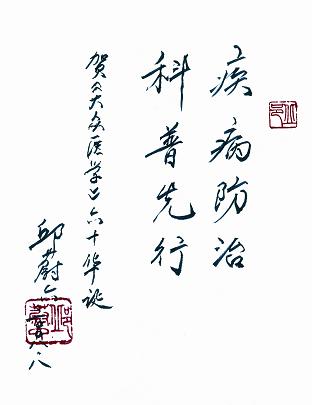 疾病防治
科普先行
贺《大众医学》六十华诞
邱蔚六